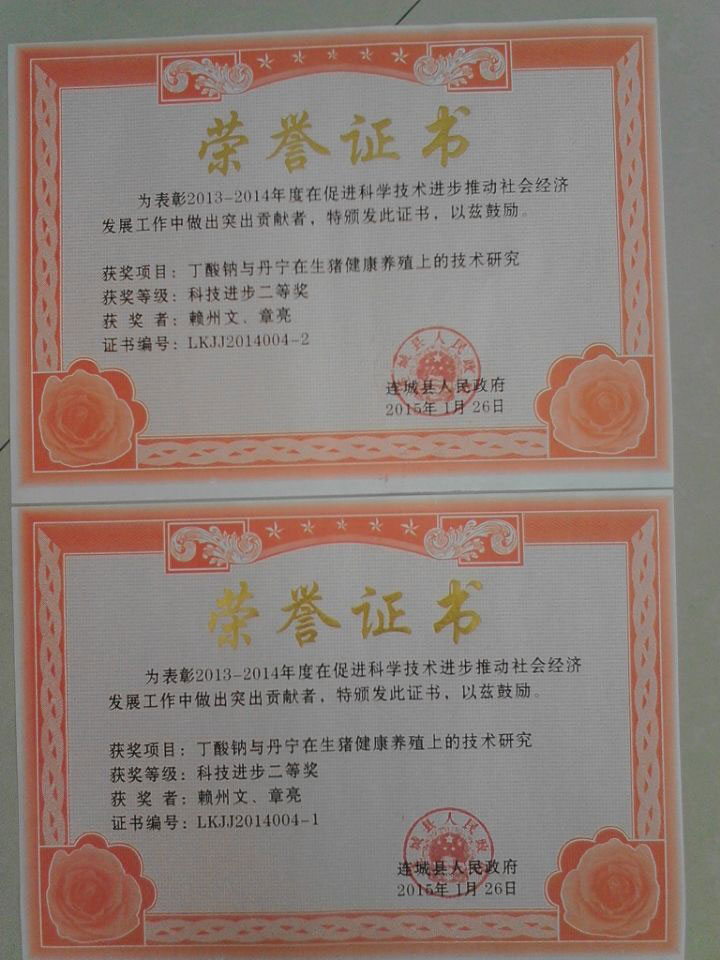 荣誉证书
为表彰2013-2014年度在促进科学技术进步推动社会经济
发展工作中做出突出贡献者，特颁发此证书，以兹鼓励。
获奖项目：丁酸钠与丹宁在生猪健康养殖上的技术研究
获奖等级：科技进步二等奖
获 奖 者：赖州文、章亮
证书编号：LKJJ2014004-2
连城县人民政府
连城县人民政府
2015年1月26日
荣誉证书
为表彰2013-2014年度在促进科学技术进步推动社会经济
发展工作中做出突出贡献者，特颁发此证书，以兹鼓励。
获奖项目：丁酸钠与丹宁在生猪健康养殖上的技术研究
获奖等级：科技进步二等奖
获 奖 者：赖州文、章亮
证书编号：LKJJ2014004-1
连城县人民政府
连城县人民政府
2015年1月26日